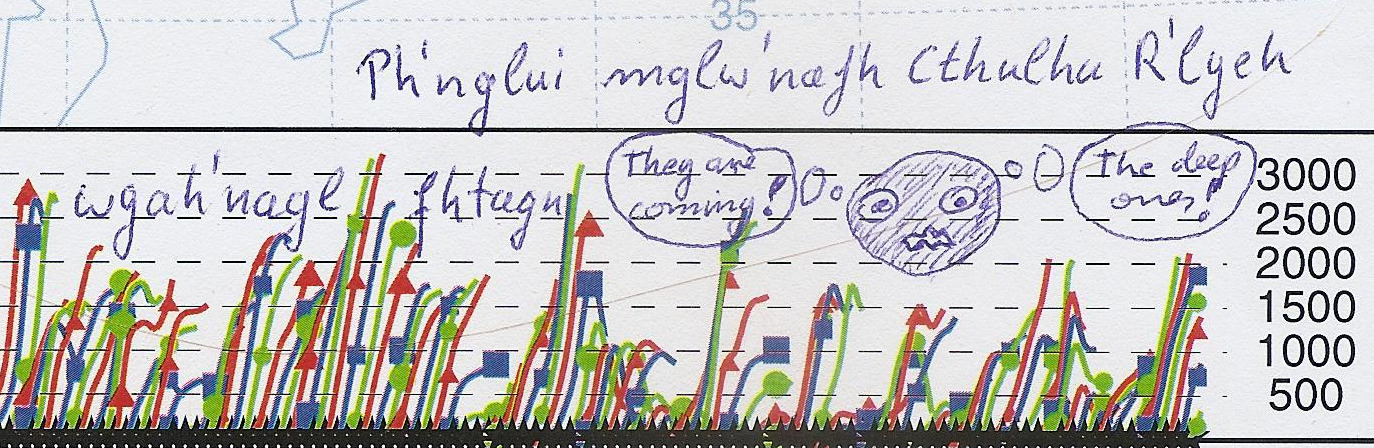 35
Ph'nglui mglw'nafh Cthulhu R'lyeh
wgah'nagl fhtagn
They are
coming!
The deep
ones!
3000
2500
2000
1500
1000
500